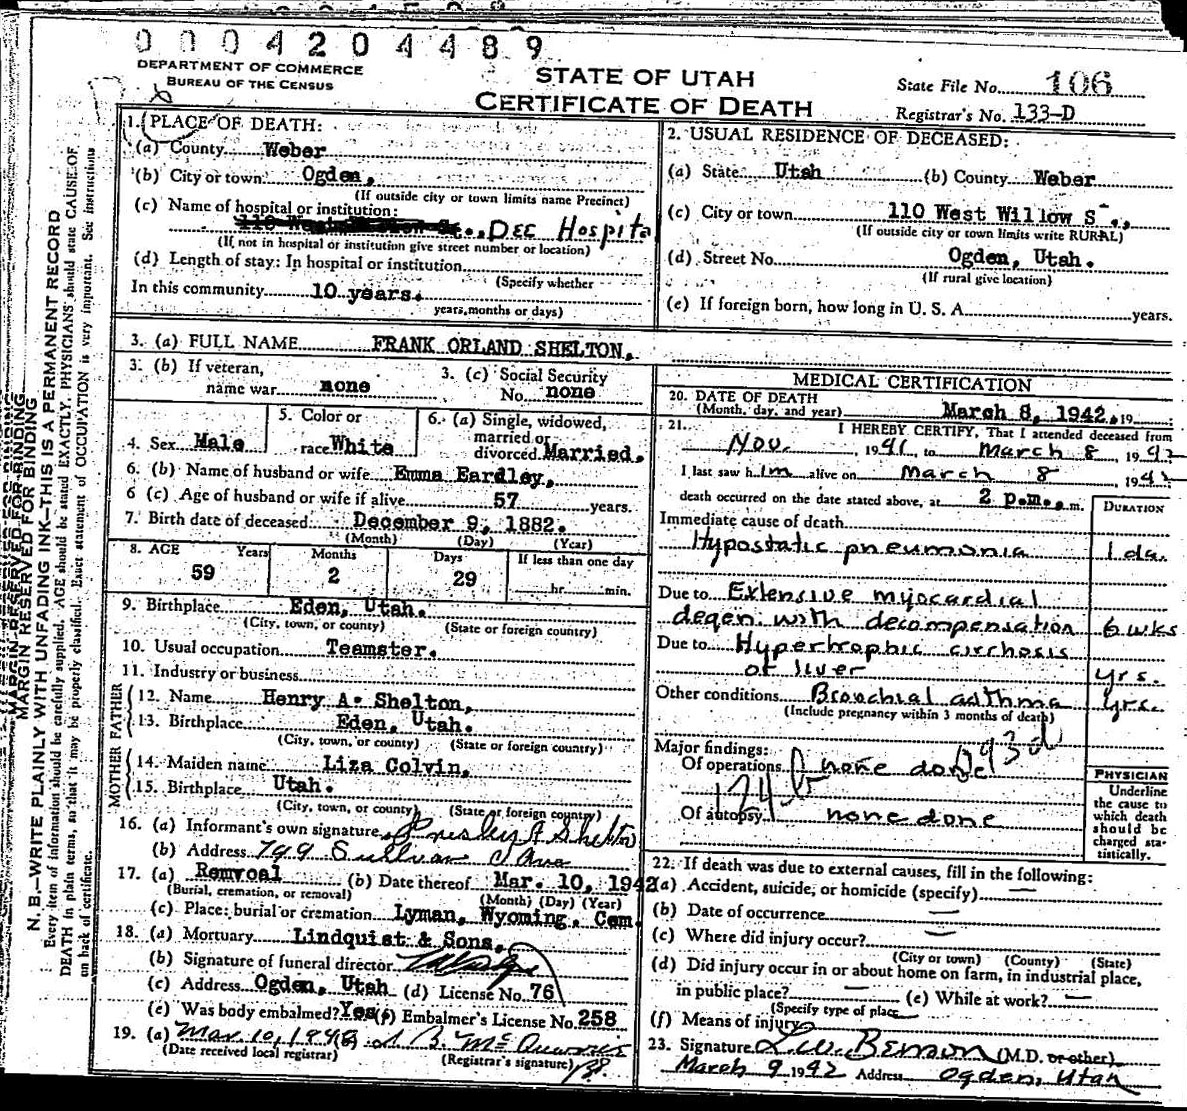 0 0 0 4 2 0 4 4 8 9
DEPARTMENT OF COMMERCE
BUREAU OF THE CENSUS
STATE OF UTAH
CERTIFICATE OF DEATH
State File No. 106
Registrar's No. 133-D
MARGIN RESERVED FOR BINDING
N. B.—WRITE PLAINLY WITH UNFADING INK—THIS IS A PERMANENT RECORD
Every item of information should be carefully supplied. AGE should be stated EXACTLY. PHYSICIANS should state CAUSE OF
DEATH in plain terms, so that it may be properly classified. Exact statement of OCCUPATION is very important. See instructions
on back of certificate.
1. (PLACE OF DEATH:
(a) County Weber
(b) City or town Ogden,
(If outside city or town limits name Precinct)
(c) Name of hospital or institution:
Dee Hospita
(If not in hospital or institution give street number or location)
(d) Length of stay: In hospital or institution
(Specify whether
In this community 10 years.
years, months or days)
2. USUAL RESIDENCE OF DECEASED:
(a) State Utah (b) County Weber
(c) City or town 110 West Willow S .,
(If outside city or town limits write RURAL)
(d) Street No. Ogden, Utah.
(If rural give location)
(e) If foreign born, how long in U. S. A. years.
3. (a) FULL NAME FRANK ORLAND SHELTON,
3. (b) If veteran,
name war none
3. (c) Social Security
No. none
4. Sex Male
5. Color or
race White
6. (a) Single, widowed,
married or
divorced Married.
6. (b) Name of husband or wife Emma Eardley,
6 (c) Age of husband or wife if alive 57 years.
7. Birth date of deceased December 9, 1882.
(Month) (Day) (Year)
8. AGE Years Months Days If less than one day
59 2 29 hr. min.
9. Birthplace Eden, Utah.
(City, town, or county) (State or foreign country)
10. Usual occupation Teamster.
11. Industry or business
FATHER
12. Name Henry A. Shelton,
13. Birthplace Eden, Utah.
(City, town, or county) (State or foreign country)
MOTHER
14. Maiden name Liza Colvin,
15. Birthplace Utah.
(City, town, or county) (State or foreign country)
16. (a) Informant's own signature Presley A Shelton
(b) Address 799 Sullivan Ave
17. (a) Remvoal (b) Date thereof Mar. 10, 1942
(Burial, cremation, or removal) (Month) (Day) (Year)
(c) Place: burial or cremation Lyman, Wyoming, Cem.
18. (a) Mortuary Lindquist & Sons,
(b) Signature of funeral director
(c) Address Ogden, Utah (d) License No. 76
(e) Was body embalmed? Yes (f) Embalmer's License No. 258
19. (a) Mar. 10, 1942
(Date received local registrar) (Registrar's signature)
MEDICAL CERTIFICATION
20. DATE OF DEATH
(Month, day, and year) March 8, 1942. 19
21. I HEREBY CERTIFY, That I attended deceased from
Nov. 1941, to March 8, 1942
I last saw him alive on March 8, 1942
death occurred on the date stated above, at 2 p.m., m.
DURATION
Immediate cause of death
Hypostatic pneumonia 1 da.
Due to Extensive myocardial
degen. with decompensation 6 wks
Due to Hypertrophic cirrhosis
of liver yrs.
Other conditions Bronchial asthma yrs.
(Include pregnancy within 3 months of death)
93d
Major findings:
Of operations none done
124-b
Of autopsy none done
PHYSICIAN
Underline
the cause to
which death
should be
charged sta-
tistically.
22. If death was due to external causes, fill in the following:
(a) Accident, suicide, or homicide (specify) —
(b) Date of occurrence —
(c) Where did injury occur? —
(City or town) (County) (State)
(d) Did injury occur in or about home on farm, in industrial place,
in public place? — (e) While at work? —
(Specify type of place
(f) Means of injury
23. Signature L.W. Benson (M.D. or other)
March 9 1942 Address Ogden, Utah